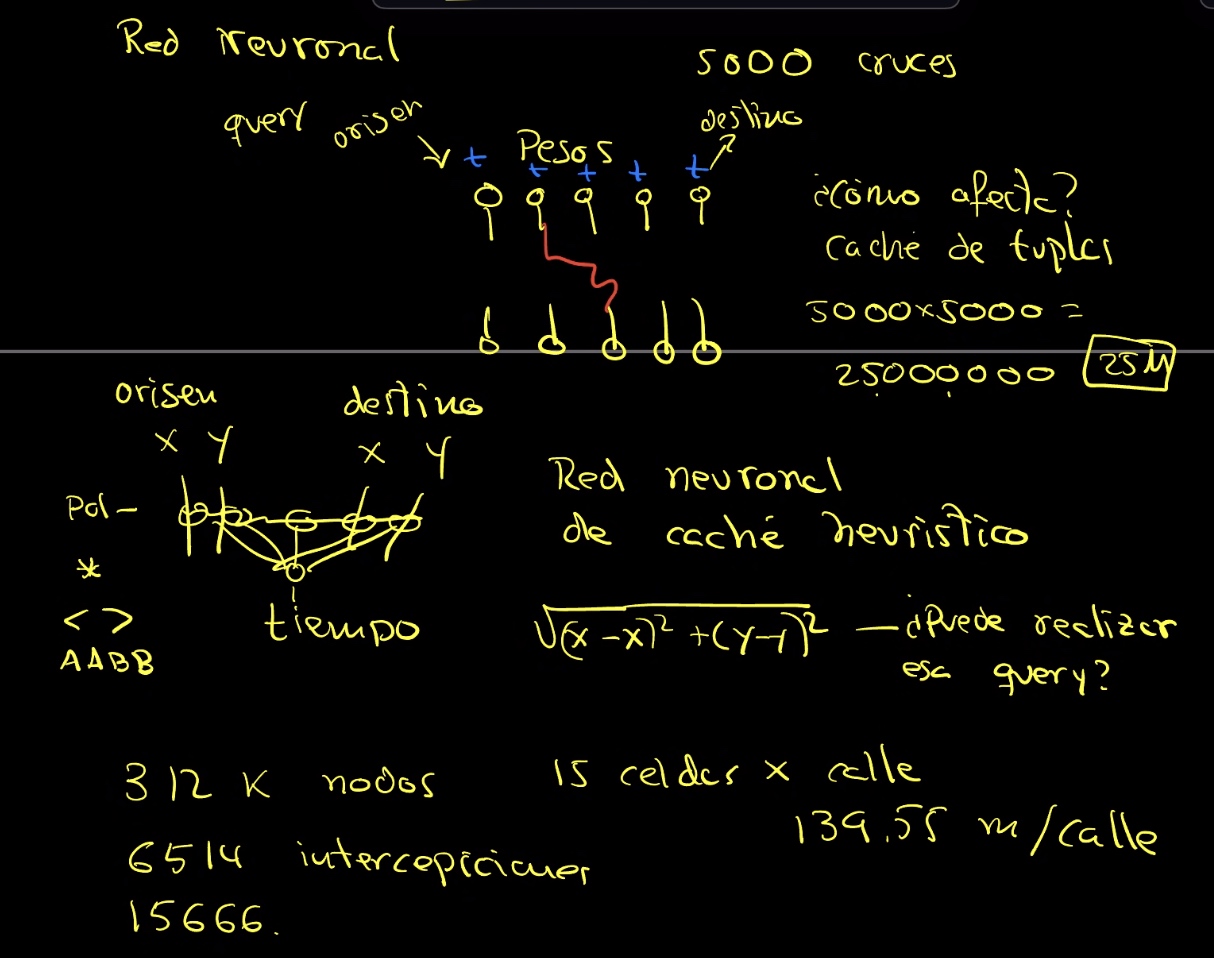 Red Neuronal
5000 cruces
query origen
destino
Pesos
+ + + + +
¿Cómo afecta?
caché de tuplas
5000x5000 =
25000000 25M
origen destino
X Y X Y
Pol -
*
< >
AABB
tiempo
Red neuronal
de caché heurístico
√(x-x)² + (y-y)² — ¿Puede realizar
esa query?
312 K nodos
6514 intercepiciones
15666.
15 celdas x calle
139.55 m/calle